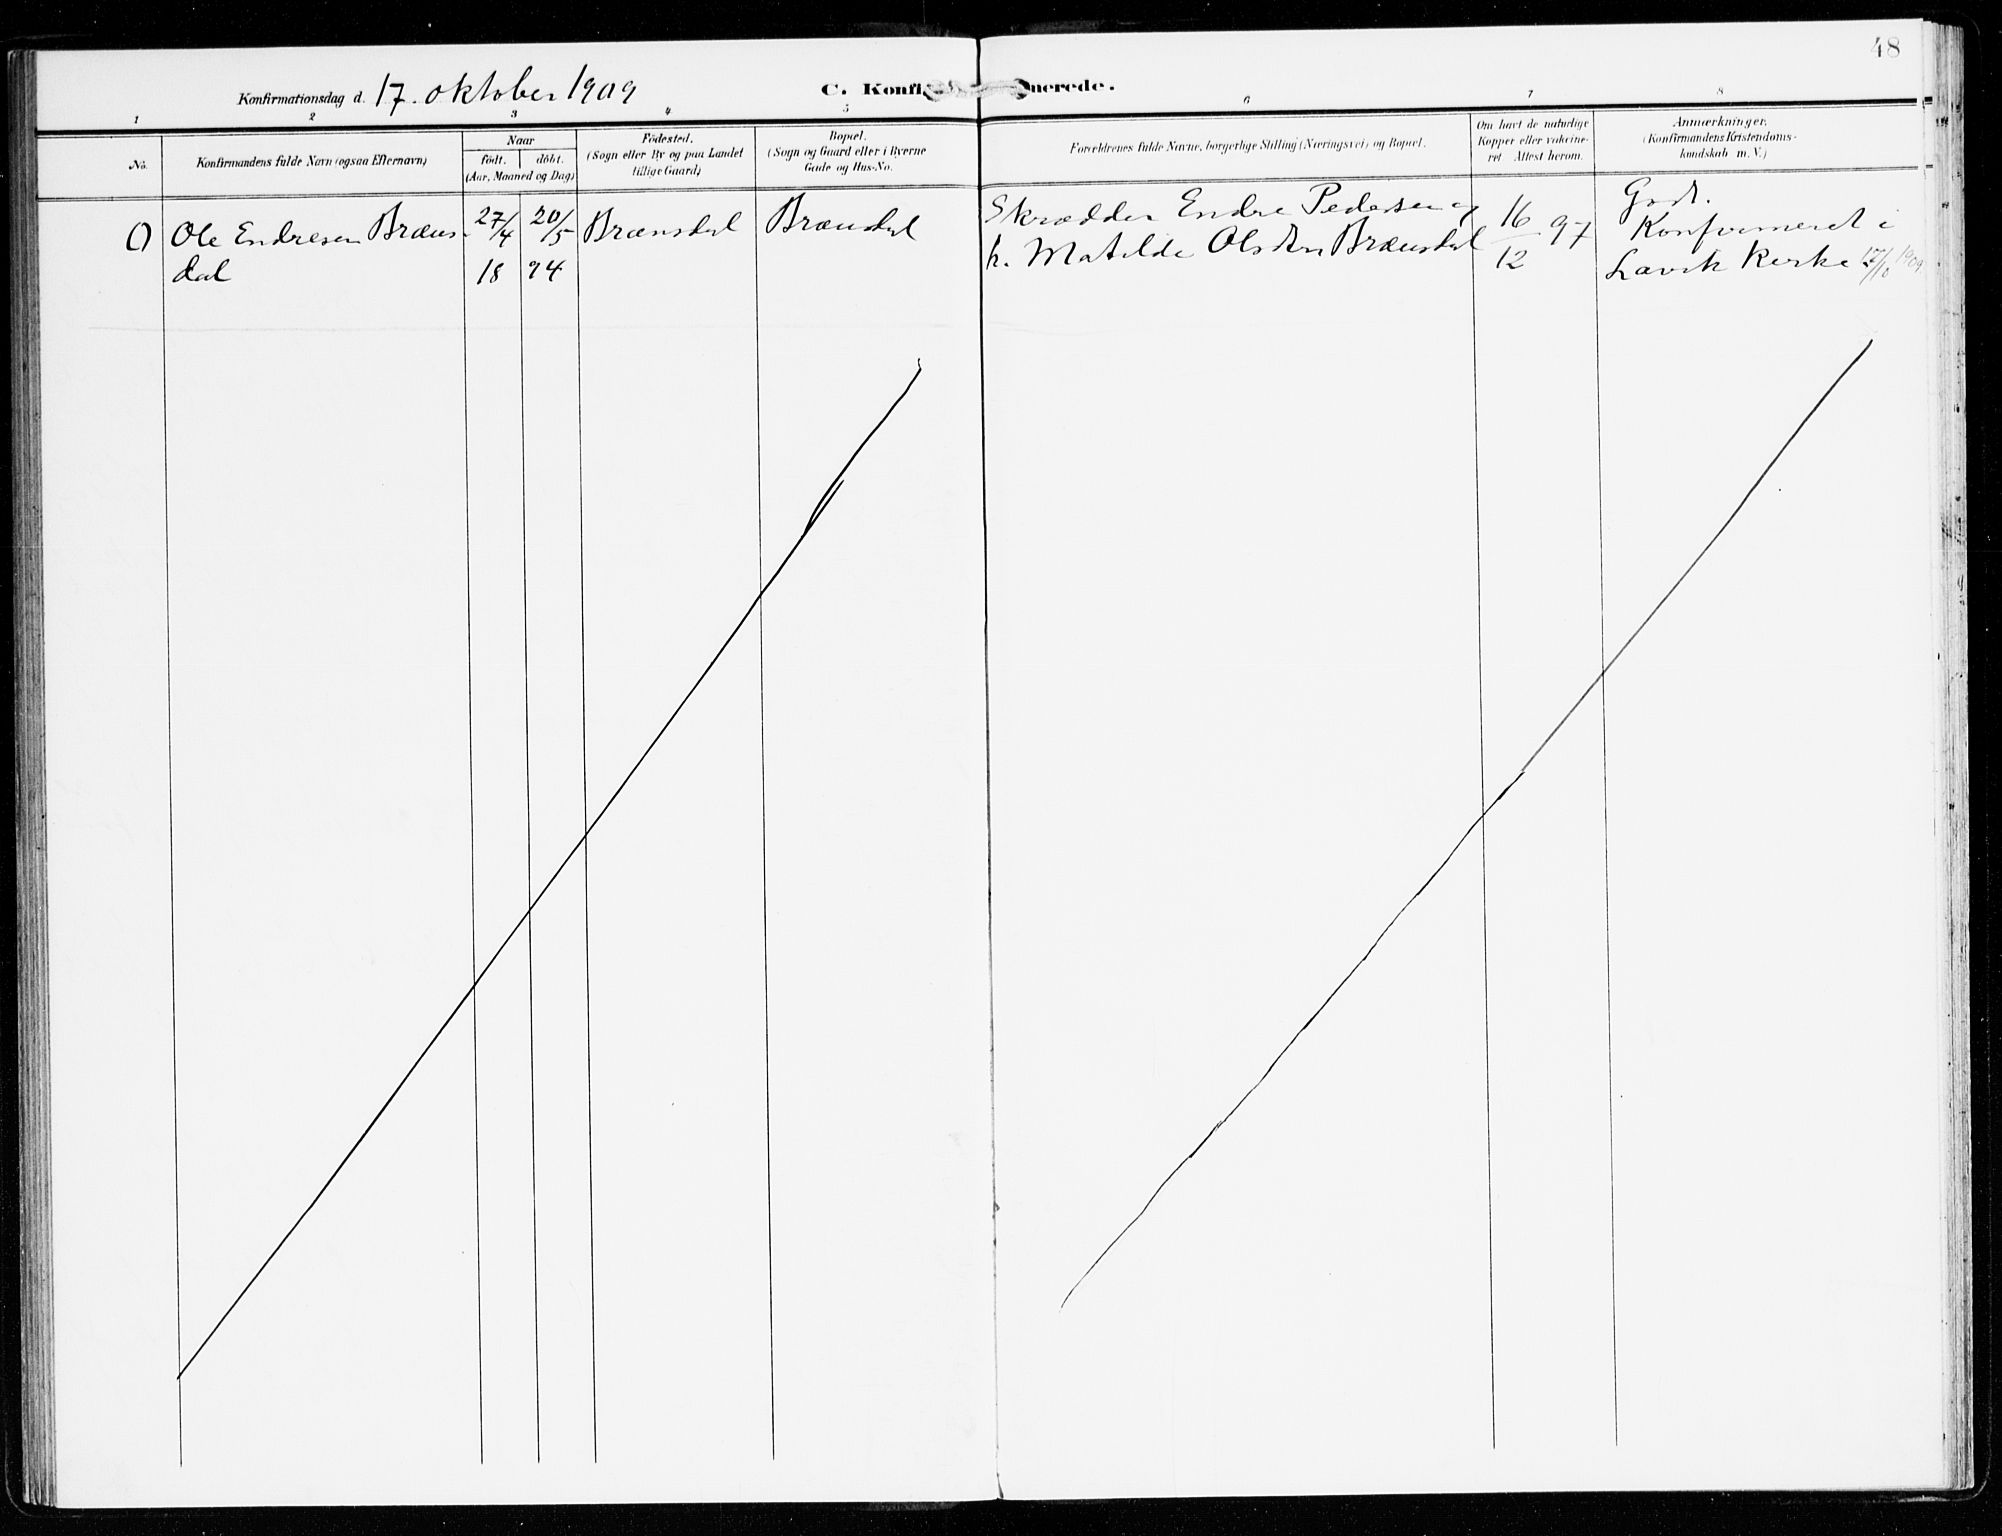 48
Konfirmationsdag d. 17. oktober 1909
C. Konfi nerede.
1 2 3 4 5 6 7 8
No.
Konfirmandens fulde Navn (ogsaa Efternavn)
Naar
födt. döbt.
(Aar, Maaned og Dag)
Födested.
(Sogn eller By og paa Landet
tillige Gaard)
Bopæl.
(Sogn og Gaard eller i Byerne
Gade og Hus-No.
Forældrenes fulde Navne, borgerlige Stilling (Næringsvei) og Bopæl.
Om havt de naturlige
Kopper eller vakcine-
ret Attest herom.
Anmærkninger.
(Konfirmandens Kristendoms-
kundskab m. V.)
() Ole Endresen Bræns- 27/4 20/5 Brænsdal Brænsdal Skrædder Endre Pedersen og 16 97 Godt.
dal 18 94 h. Matilde Olsdtr Brænsdal 12 Konfirmeret i
Lavik Kirke 17/10 1909.